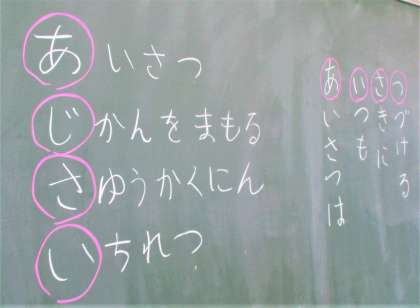 あいさつ
じかんをまもる
さゆうかくにん
いちれつ
あいさつは
いつも
さきに
つづける